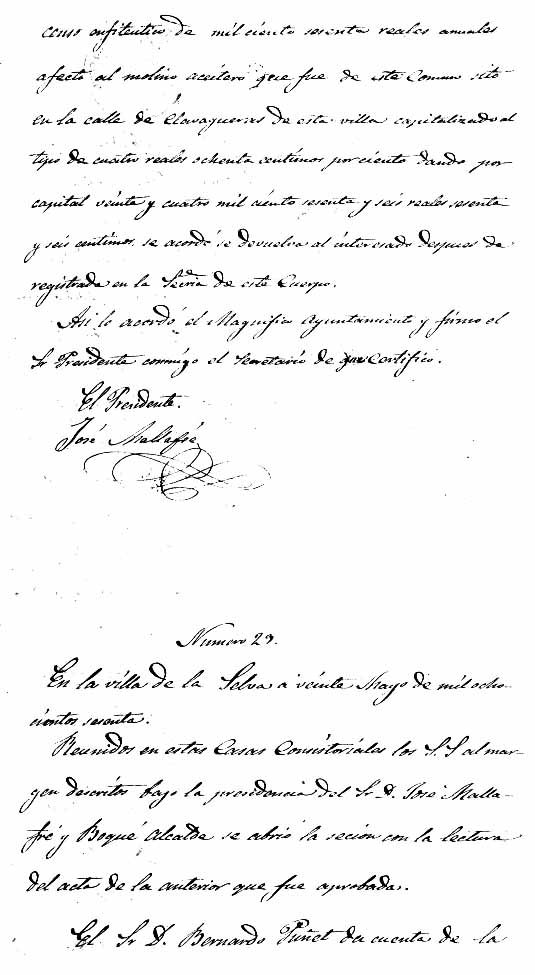 censo enfiteutico de mil ciento sesenta reales anuales
afecto al molino aceitero que fue de este Comun sito
en la calle de Clavagueras de esta villa capitalizado al
tipo de cuatro reales ochenta centimos por ciento dando por
capital veinte y cuatro mil ciento sesenta y seis reales sesenta
y seis centimos, se acordó se devuelva al interesado despues de
registrada en la Secria de este Cuerpo.
Asi lo acordó el Magnifico Ayuntamiento y firmo el
Sr Presidente conmigo el Secretario de que certifico.
El Presidente.
José Mallafré
Numero 29.
En la villa de la Selva á veinte Mayo de mil ocho-
cientos sesenta.
Reunidos en estas Casas Consistoriales los S.S al mar-
gen descritos bajo la presidencia del Sr D. José Malla-
fré y Boqué Alcalde se abrió la secion con la lectura
del acta de la anterior que fue aprobada.
El Sr D. Bernardo Puñet da cuenta de la